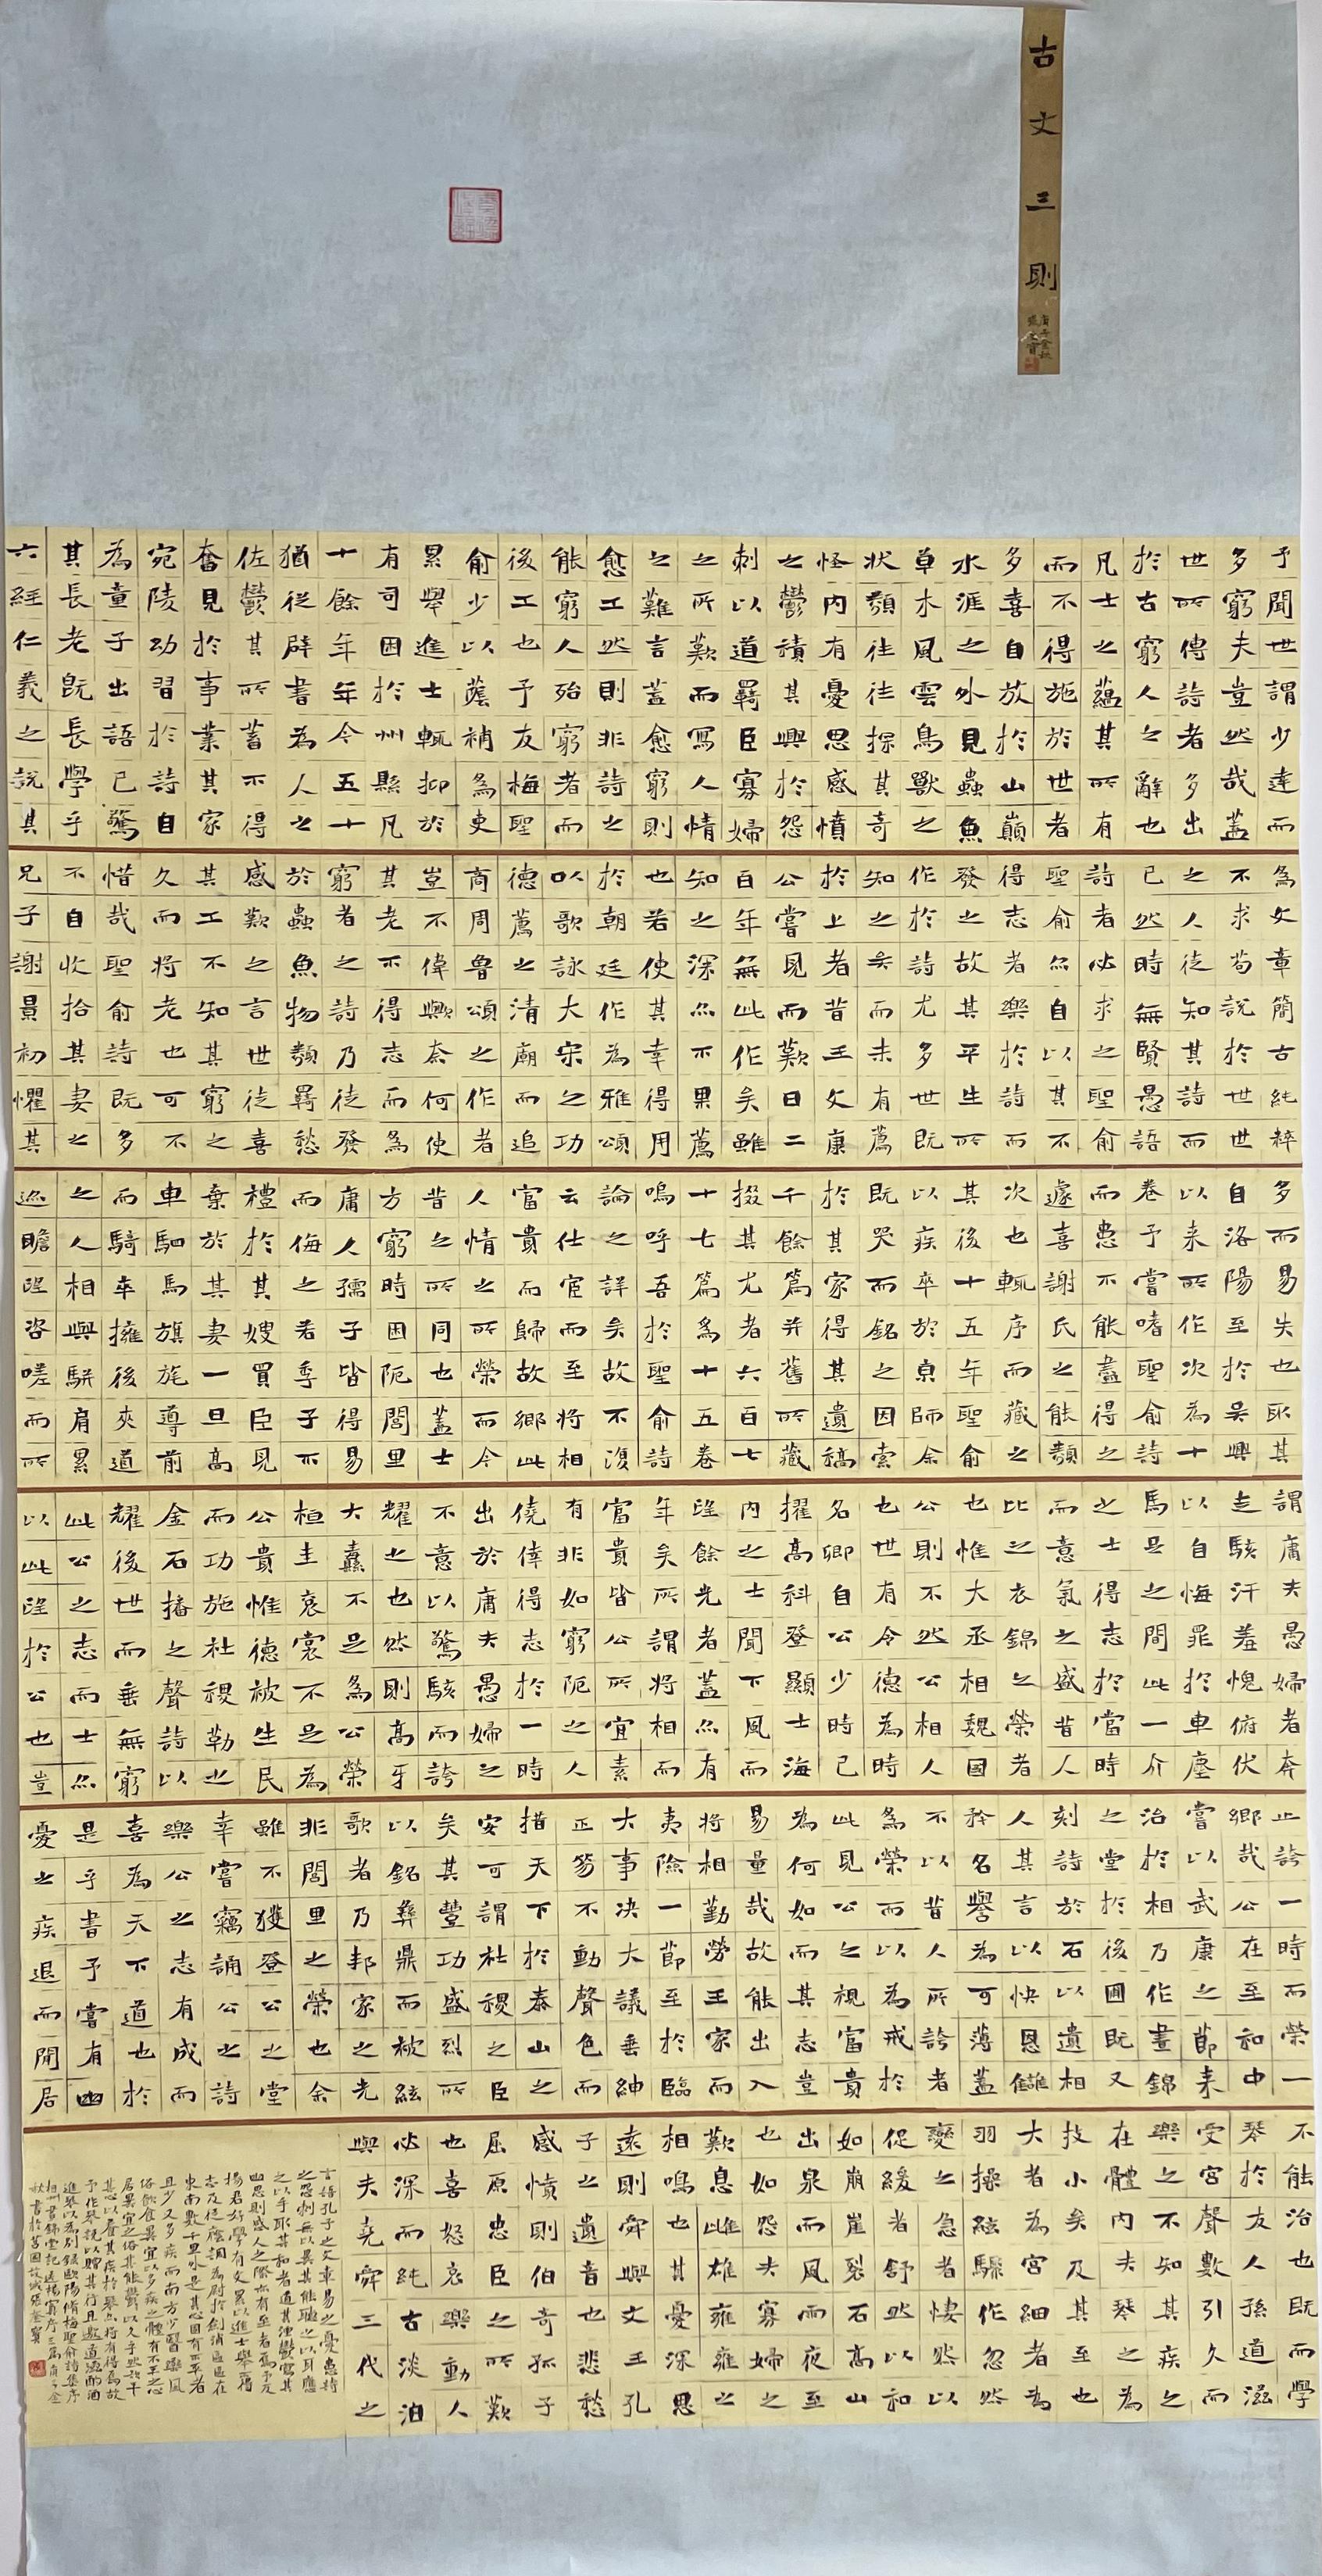 古文三則
庚子金秋
予聞世謂少達而
多窮夫豈然哉蓋
世所傳詩者多出
於古窮人之辭也
凡士之蘊其所有
而不得施於世者
多喜自放於山巔
水涯之外見蟲魚
草木風雲鳥獸之
狀類往往探其奇
怪內有憂思感憤
之鬱積其興於怨
刺以道羇臣寡婦
之所歎而寫人情
之難言蓋愈窮則
愈工然則非詩之
能窮人殆窮者而
後工也予友梅聖
俞少以蔭補為吏
累舉進士輒抑於
有司困於州縣凡
十餘年年今五十
猶從辟書為人之
佐鬱其所蓄不得
奮見於事業其家
宛陵幼習於詩自
為童子出語已驚
其長老既長學乎
六經仁義之說其
為文章簡古純粹
不求苟說於世世
之人徒知其詩而
已然時無賢愚語
詩者必求之聖俞
聖俞亦自以其不
得志者樂於詩而
發之故其平生所
作於詩尤多世既
知之矣而未有薦
於上者昔王文康
公嘗見而歎曰二
百年無此作矣雖
知之深亦不果薦
也若使其幸得用
於朝廷作為雅頌
以歌詠大宋之功
德薦之清廟而追
商周魯頌之作者
豈不偉歟奈何使
其老不得志而為
窮者之詩乃徒發
於蟲魚物類羇愁
感歎之言世徒喜
其工不知其窮之
久而將老也可不
惜哉聖俞詩既多
不自收拾其妻之
兄子謝景初懼其
多而易失也取其
自洛陽至於吳興
以來所作次為十
卷予嘗嗜聖俞詩
而患不能盡得之
遽喜謝氏之能類
次也輒序而藏之
其後十五年聖俞
以疾卒於京師余
既哭而銘之因索
於其家得其遺稿
千餘篇并舊所藏
掇其尤者六百七
十七篇為十五卷
嗚呼吾於聖俞詩
論之詳矣故不復
云仕宦而至將相
富貴而歸故鄉此
人情之所榮而今
昔之所同也蓋士
方窮時困阨閭里
庸人孺子皆得易
而侮之若季子不
禮於其嫂買臣見
棄於其妻一旦高
車駟馬旗旄導前
而騎卒擁後夾道
之人相與駢肩累
迹瞻望咨嗟而所
謂庸夫愚婦者奔
走駭汗羞愧俯伏
以自悔罪於車塵
馬足之間此一介
之士得志於當時
而意氣之盛昔人
比之衣錦之榮者
也惟大丞相魏國
公則不然公相人
也世有令德為時
名卿自公少時已
擢高科登顯士海
內之士聞下風而
望餘光者蓋亦有
年矣所謂將相而
富貴皆公所宜素
有非如窮阨之人
僥倖得志於一時
出於庸夫愚婦之
不意以驚駭而誇
耀之也然則高牙
大纛不足為公榮
桓圭袞裳不足為
公貴惟德被生民
而功施社稷勒之
金石播之聲詩以
耀後世而垂無窮
此公之志而士亦
以此望於公也豈
止誇一時而榮一
鄉哉公在至和中
嘗以武康之節來
治於相乃作晝錦
之堂於後圃既又
刻詩於石以遺相
人其言以快恩讎
矜名譽為可薄蓋
不以昔人所誇者
為榮而以為戒於
此見公之視富貴
為何如而其志豈
易量哉故能出入
將相勤勞王家而
夷險一節至於臨
大事決大議垂紳
正笏不動聲色而
措天下於泰山之
安可謂社稷之臣
矣其豐功盛烈所
以銘彝鼎而被絃
歌者乃邦家之光
非閭里之榮也余
雖不獲登公之堂
幸嘗竊誦公之詩
樂公之志有成而
喜為天下道也於
是乎書予嘗有幽
憂之疾退而閒居
不能治也既而學
琴於友人孫道滋
受宮聲數引久而
樂之不知其疾之
在體內夫琴之為
技小矣及其至也
大者為宮細者為
羽操絃驟作忽然
變之急者悽然以
促緩者舒然以和
如崩崖裂石高山
出泉而風雨夜至
也如怨夫寡婦之
歎息雌雄雍雍之
相鳴也其憂深思
遠則舜與文王孔
子之遺音也悲愁
感憤則伯奇孤子
屈原忠臣之所歎
也喜怒哀樂動人
必深而純古淡泊
與夫堯舜三代之
言語孔子之文章易之憂患詩
之怨刺無以異其能聽之以耳應
之以手取其和者道其湮鬱寫其
幽思則感人之際亦有至者焉予友
楊君好學有文累以進士舉不得
志及從蔭調為尉於劍浦區區在
東南數千里外是其心固有不平者
且少又多疾而南方少醫藥風
俗飲食異宜以多疾之體有不平之心
居異宜之俗其能鬱鬱以久乎然欲平
其心以養其疾於琴亦將有得焉故
予作琴說以贈其行且邀道滋酌酒
進琴以為別錄歐陽脩梅聖俞詩集序
相州晝錦堂記送楊寘序三篇庚子金
秋書於莒國故城張奎寶